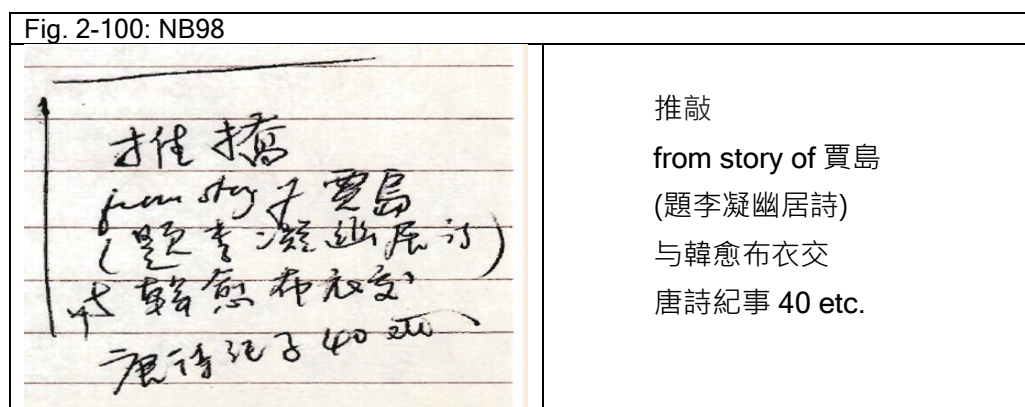 Fig. 2-100: NB98
推撟
from story of 賈島
(題李凝幽居詩)
与韓愈布衣交
唐詩紀事 40 etc
推敲
from story of 賈島
(題李凝幽居詩)
与韓愈布衣交
唐詩紀事 40 etc.